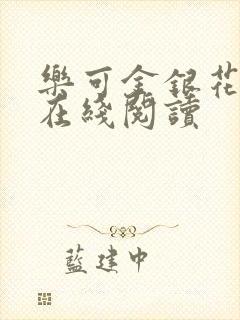 樂可金銀花
在綫閱讀
藍建中